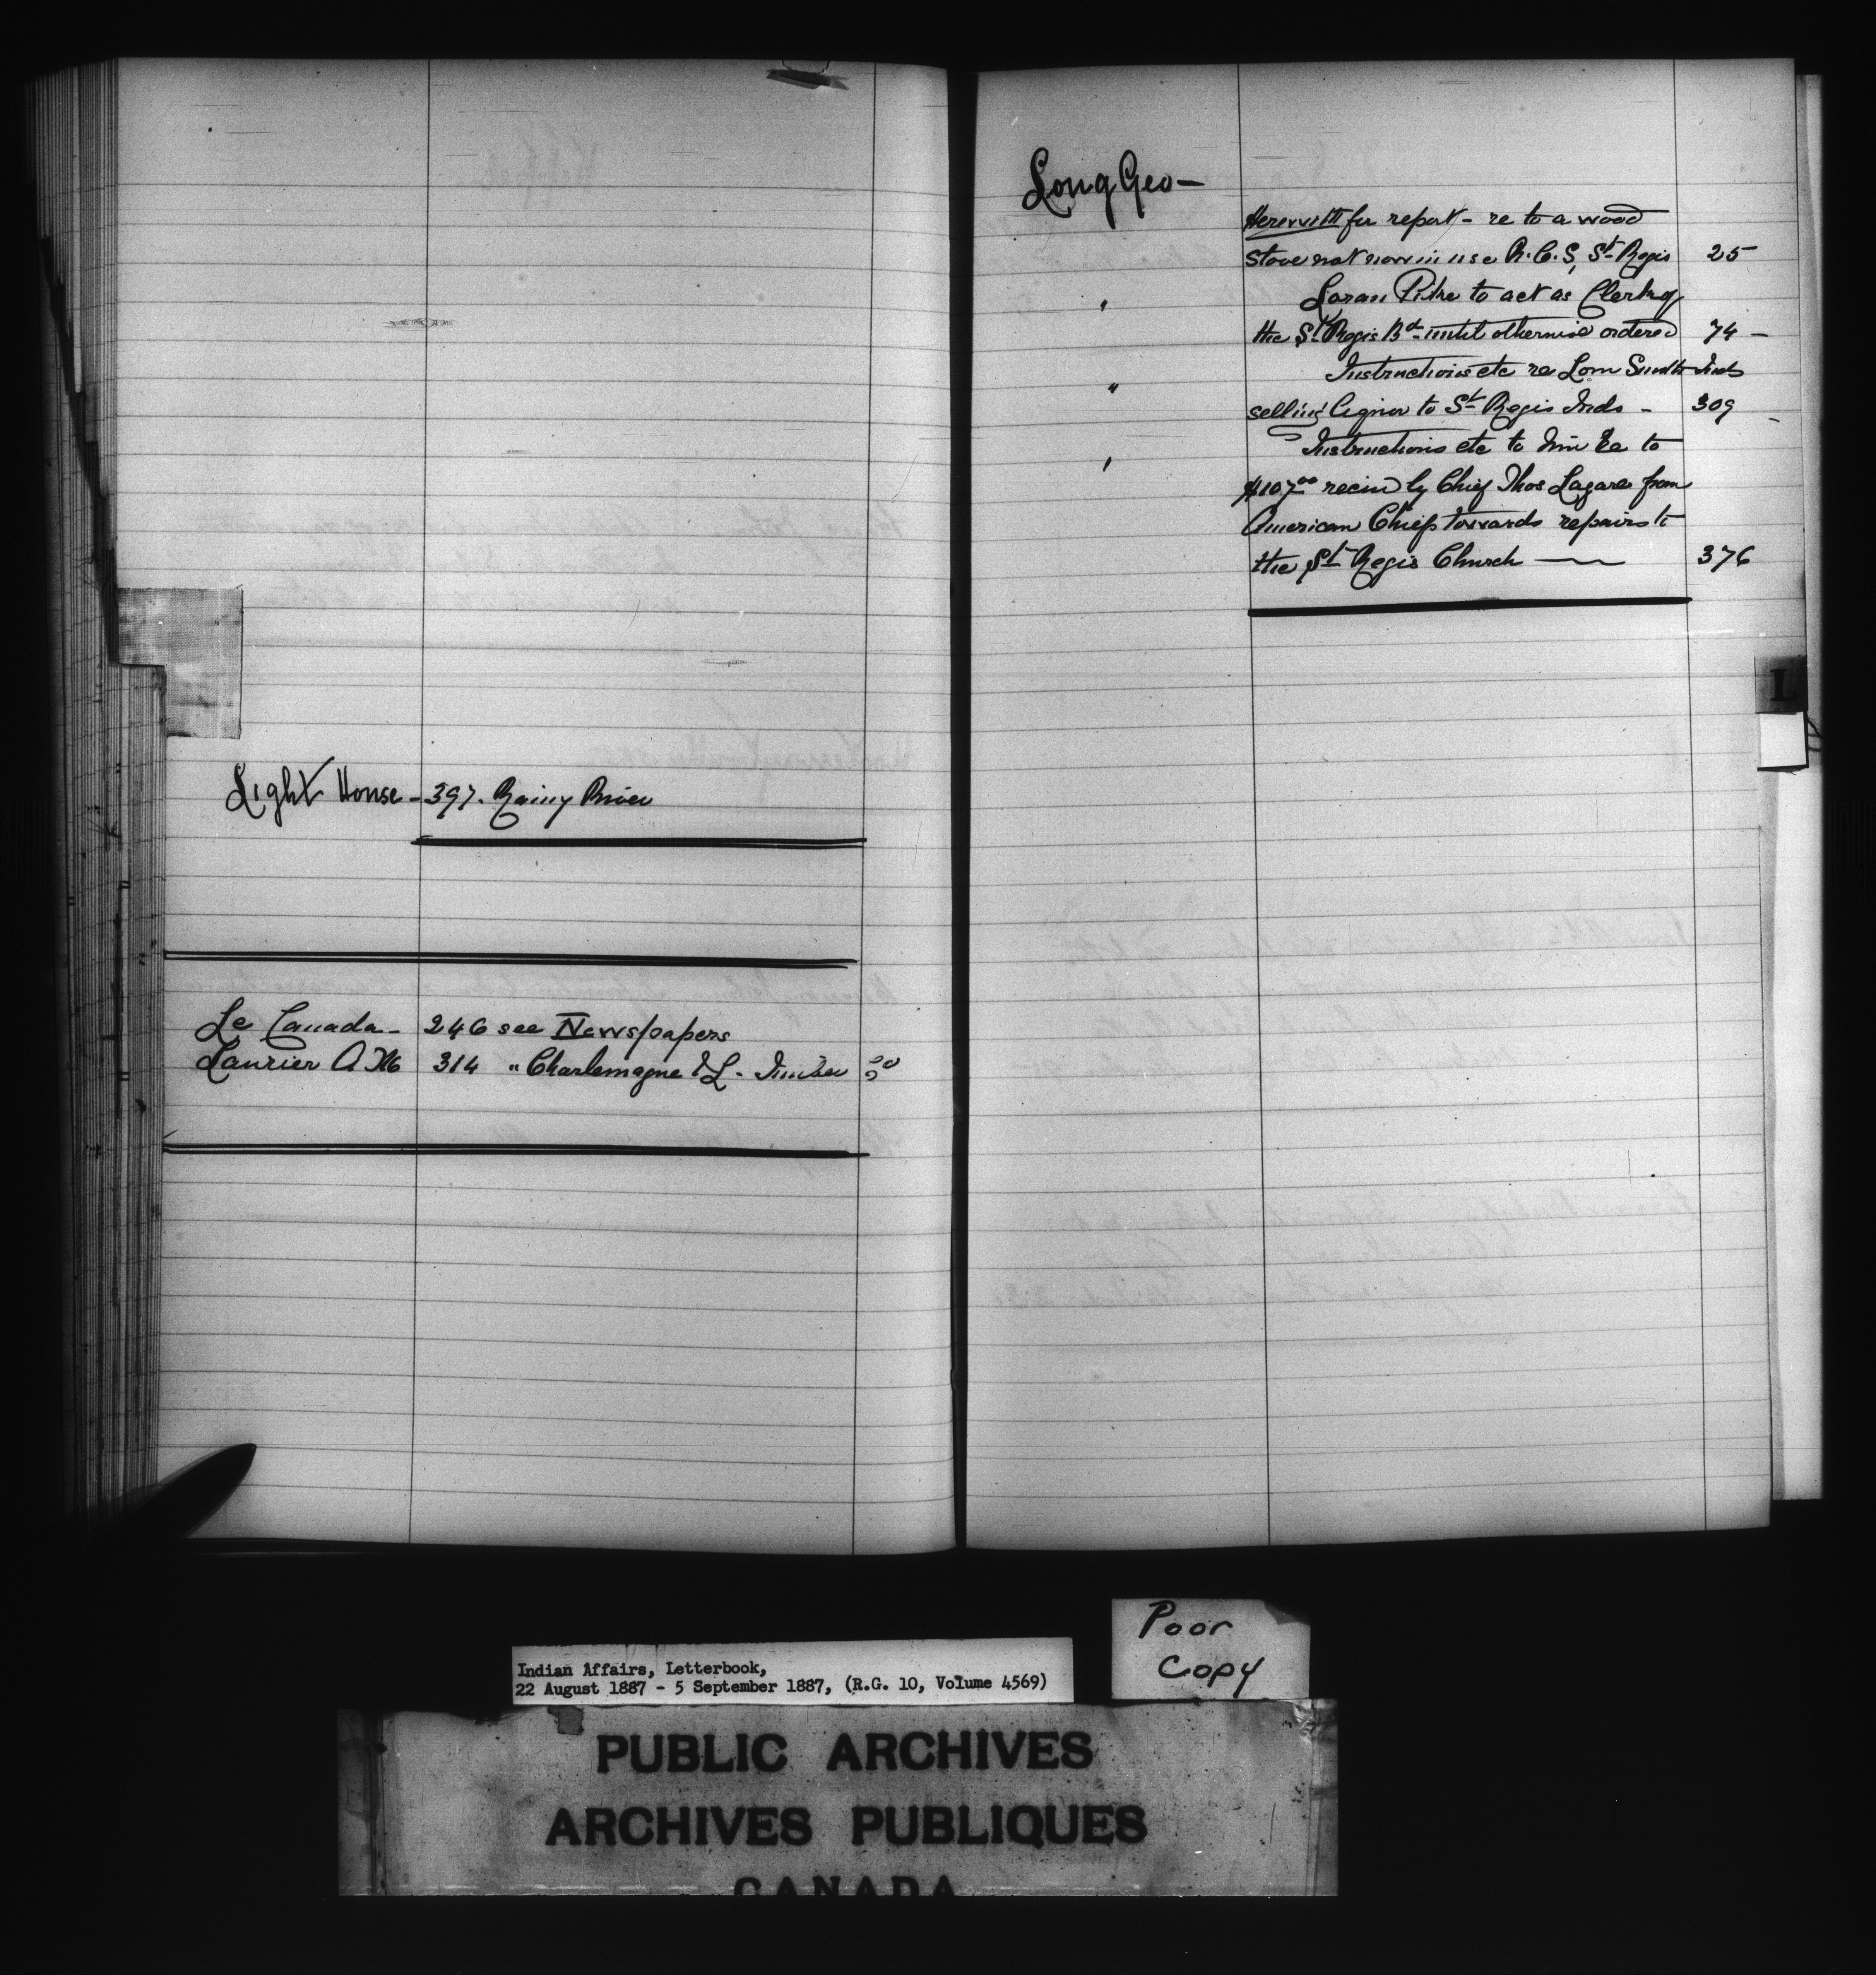 Light House - 397. Rainy River
Le Canada - 246 see Newspapers
Laurier A 314 " Charlemagne & L. Co
Long Geo -
Herewith for report - re to a wood
stove not now in use R.C.S, St Regis 25
" Loran Pike to act as Clerk of
the St Regis Bd until otherwise ordered 74 -
" Instructions etc re Lom Inds
selling liquor to St Regis Inds - 309
" Instructions etc to him re to
$107.00 by Chief Thos Lazare from
American Chiefs towards repairs to
the St Regis Church - 376
L
Poor
Copy
Indian Affairs, Letterbook,
22 August 1887 - 5 September 1887, (R.G. 10, Volume 4569)
PUBLIC ARCHIVES
ARCHIVES PUBLIQUES
CANADA